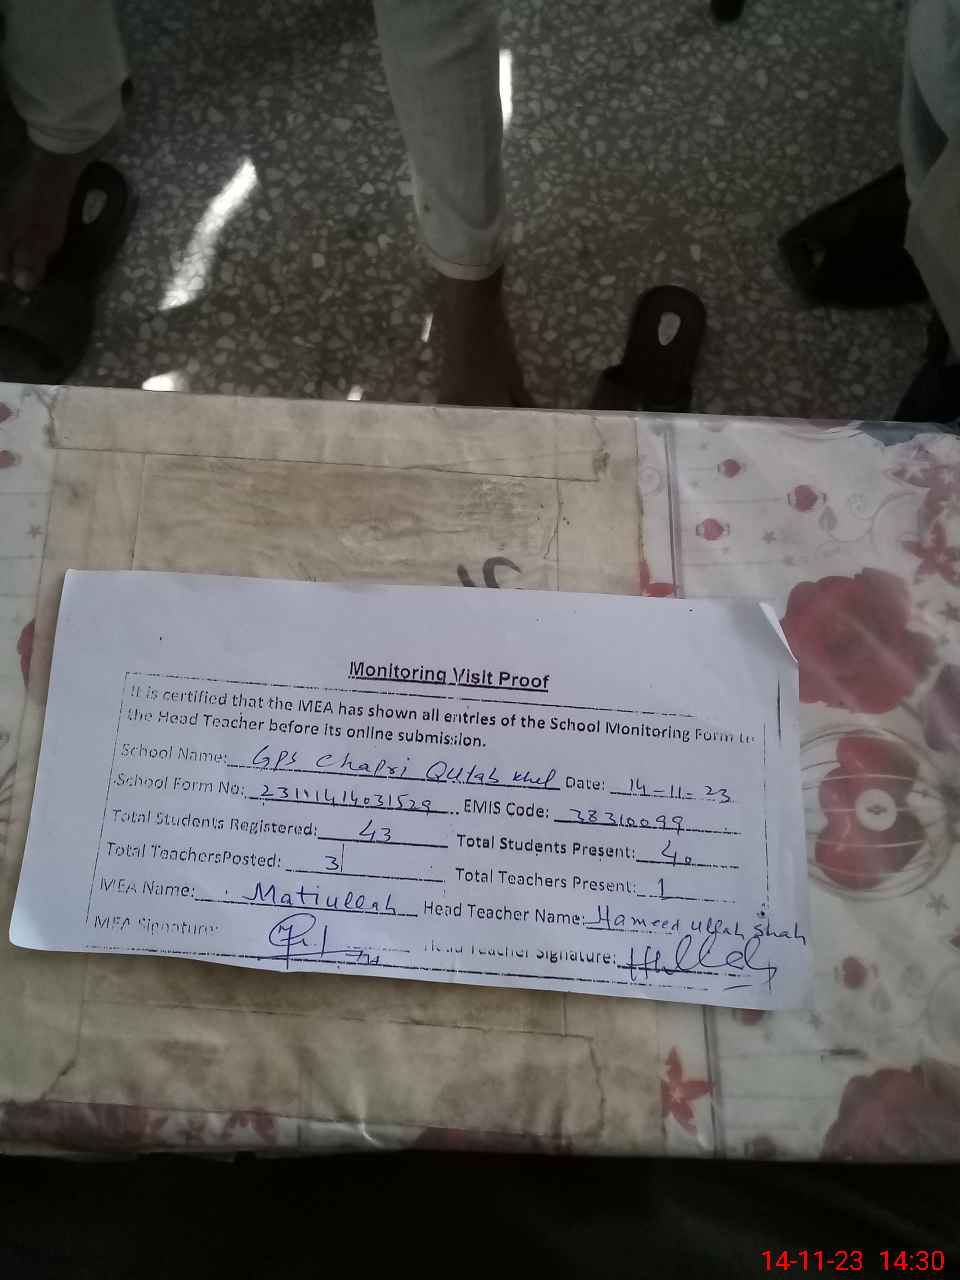 Monitoring Visit Proof
It is certified that the MEA has shown all entries of the School Monitoring Form to
the Head Teacher before its online submission.
School Name: GPS Chapri Qutab Khel Date: 14-11-23
School Form No: 23101414031529 EMIS Code: 38310099
Total Students Registered: 43 Total Students Present: 40
Total TeachersPosted: 3 Total Teachers Present: 1
MEA Name: Matiullah Head Teacher Name: Hameed ullah Shah
MEA Signature: Head Teacher Signature:
14-11-23 14:30